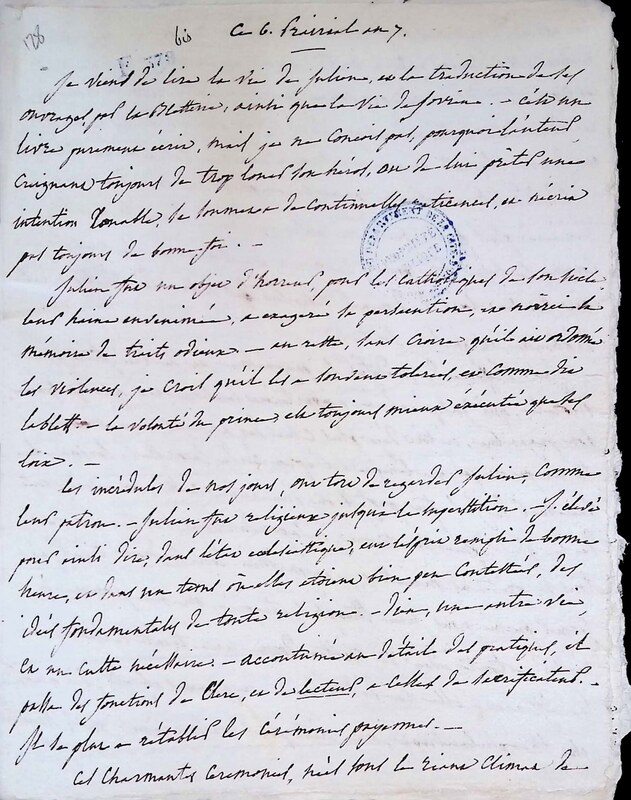 178
bis
ce 6. Prairial an 7.
Je viens de lire la vie de Julien, et la traduction de ses
ouvrages, par la Bletterie, ainsi que la vie de Jovien. — C'est un
livre purement écrit, mais je ne conçois pas, pourquoi l'auteur
craignant toujours de trop louer son héros, ou de lui prêter une
intention louable, se donne de continuelles réticences, et n'écrit
pas toujours de bonne foi. —
Julien fut un objet d'horreur, pour les catholiques de son siècle
leur haine envenimée, a exagéré la persécution, et noirci la
mémoire de traits odieux — au reste, sans croire qu'il ait ordonné
les violences, je crois qu'il les a souvent tolérées, et comme dit
la Blett. — la volonté du prince, est toujours mieux exécutée que ses
loix. —
Les incrédules de nos jours, ont tort de regarder Julien, comme
leur patron. — Julien fut religieux jusqu'à la superstition. — élevé
pour ainsi dire, dans l'état ecclésiastique, eut l'esprit rempli de bonne
heure, et dans un tems où elles étoient bien peu contestées, des
idées fondamentales de toute religion — d'un, une autre vie,
et un culte nécessaire. — accoutumé au détail des pratiques, il
passa des fonctions de Clerc, et de lecteur, a celles de sacrificateur. —
Il se plut a rétablir les Cérémonies payennes. —
Ces Charmantes Ceremonies, nées sous le riant Climat de